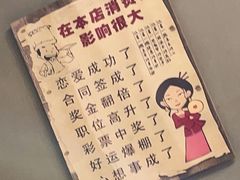 在本店消费
影响很大
恋爱成功了
合同签成了
奖金翻倍了
职位高升了
彩票中奖了
好运爆棚了
心想事成了